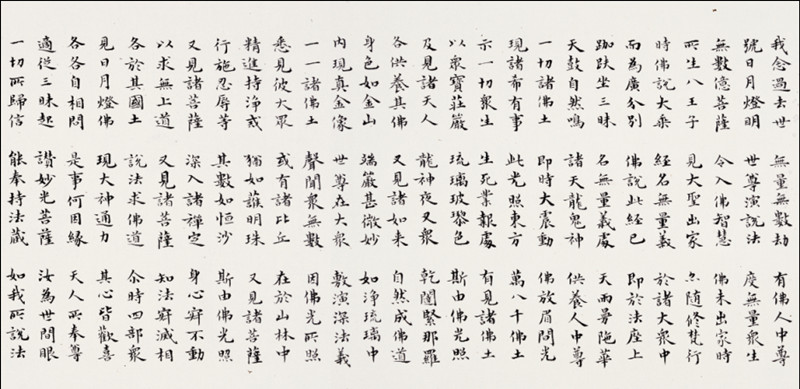 我念過去世 無量無數劫 有佛人中尊
號日月燈明 世尊演說法 度無量衆生
無數億菩薩 令入佛智慧 佛未出家時
所生八王子 見大聖出家 亦隨修梵行
時佛說大乘 經名無量義 於諸大衆中
而為廣分別 佛說此經已 即於法座上
跏趺坐三昧 名無量義處 天雨曼陀華
天鼓自然鳴 諸天龍鬼神 供養人中尊
一切諸佛土 即時大震動 佛放眉間光
現諸希有事 此光照東方 萬八千佛土
示一切衆生 生死業報處 有見諸佛土
以衆寶莊嚴 琉璃玻瓈色 斯由佛光照
及見諸天人 龍神夜叉衆 乾闥緊那羅
各供養其佛 又見諸如来 自然成佛道
身色如金山 端嚴甚微妙 如淨琉璃中
內現真金像 世尊在大衆 敷演深法義
一一諸佛土 聲聞衆無數 因佛光所照
悉見彼大衆 或有諸比丘 在於山林中
精進持淨戒 猶如護明珠 又見諸菩薩
行施忍辱等 其數如恒沙 斯由佛光照
又見諸菩薩 深入諸禪定 身心寂不動
以求無上道 又見諸菩薩 知法寂滅相
各於其國土 說法求佛道 尒時四部衆
見日月燈佛 現大神通力 其心皆歡喜
各各自相問 是事何因緣 天人所奉尊
適從三昧起 讚妙光菩薩 汝為世間眼
一切所歸信 能奉持法藏 如我所說法